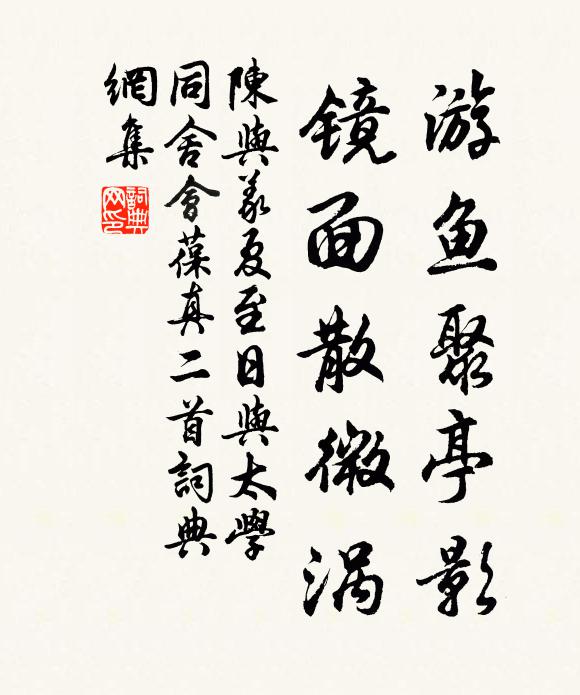 游鱼聚亭影
镜面散微涡
陳與義夏至日與太學
同舍會葆真二首詞典
網集
詞典
网印